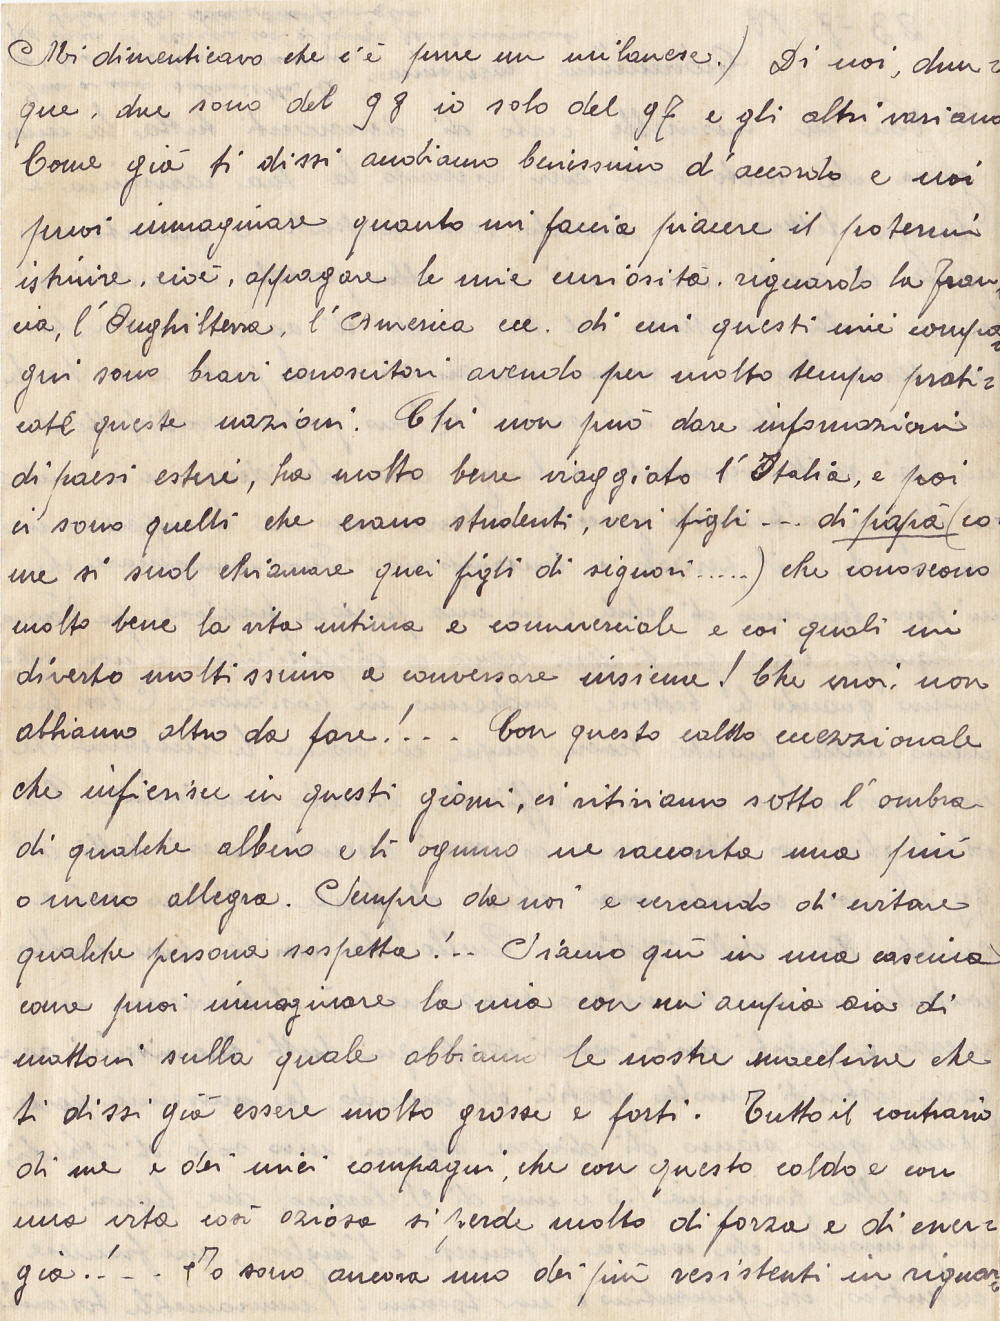 Mi dimenticavo che c'è pure un milanese.) Di noi, dun=
que, due sono del 98 io solo del 97 e gli altri variano
Come già ti dissi andiamo benissimo d'accordo e voi
puoi immaginare quanto mi faccia piacere il potermi
istruire, cioè, appagare le mie curiosità, riguardo la Fran=
cia, l'Inghilterra, l'America ecc. di cui questi miei compa=
gni sono bravi conoscitori avendo per molto tempo prati=
cate queste nazioni. Chi non può dare informazioni
di paesi esteri, ha molto bene viaggiato l'Italia, e poi
ci sono quelli che erano studenti, veri figli --- di papà (co=
me si suol chiamare quei figli di signori.....) che conoscono
molto bene la vita intima e commerciale e coi quali mi
diverto moltissimo a conversare insieme! Che vuoi, non
abbiamo altro da fare!... Con questo caldo eccezzionale
che infierisce in questi giorni, ci ritiriamo sotto l'ombra
di qualche albero e lì ognuno ne racconta una più
o meno allegra. Sempre da noi e cercando di evitare
qualche persona sospetta!.. Siamo quì in una cascina
come puoi immaginare la mia con un'ampia aia di
mattoni sulla quale abbiamo le nostre macchine che
ti dissi già essere molto grosse e forti. Tutto il contrario
di me e dei miei compagni, che con questo caldo e con
una vita così oziosa si perde molto di forza e di ener=
gia!.... Io sono ancora uno dei più resistenti in riguar=